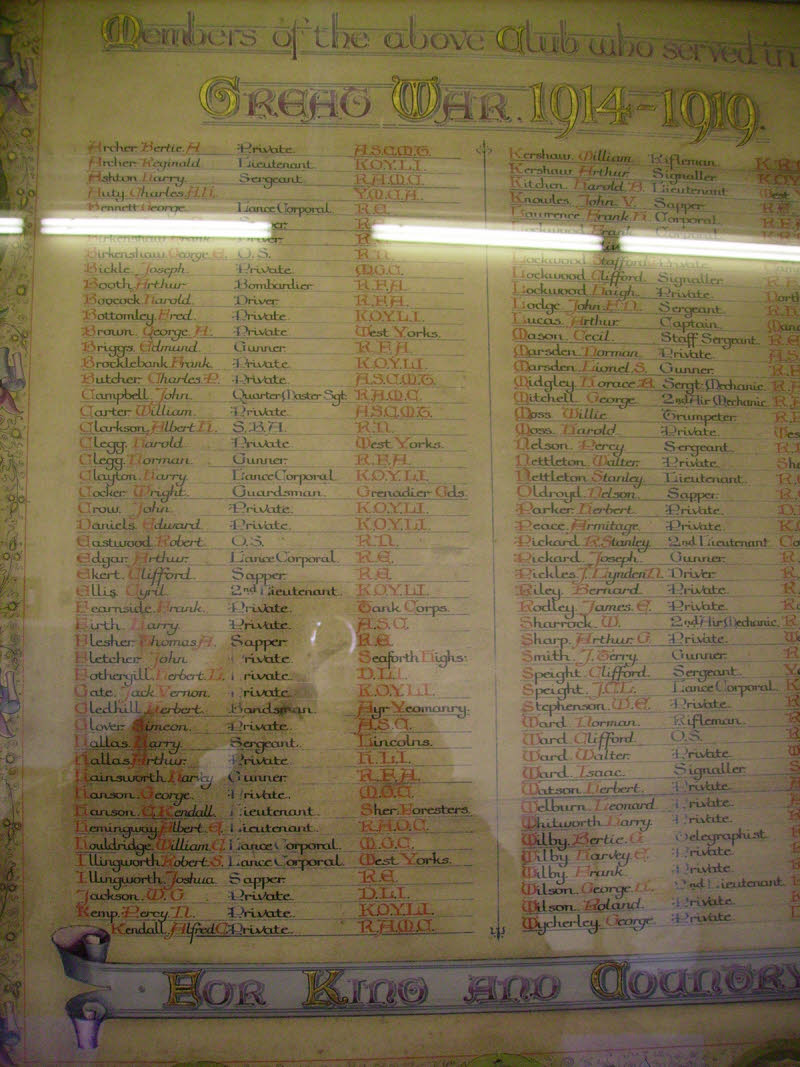 Members of the above Club who served in
Great War. 1914-1919.
Archer. Bertie. H. Private. A.S.C.M.T.
Archer. Reginald Lieutenant. K.O.Y.L.I.
Ashton. Harry. Sergeant. R.A.M.C.
Auty. Charles. Y.M.C.A.
Bennett. George. Lance Corporal. R.E.
R.
Birkenshaw. Frank.
Birkenshaw. George. O.S. R.N.
Bickle. Joseph. Private. M.G.C.
Booth. Arthur. Bombardier. R.F.A.
Boocock. Harold. Driver. R.F.A.
Bottomley. Fred. Private. K.O.Y.L.I.
Brown. George. H. Private. West Yorks.
Briggs. Edmund. Gunner. R.F.A.
Brocklebank. Frank. Private. K.O.Y.L.I.
Butcher. Charles. P. Private. A.S.C.M.T.
Campbell. John. Quarter Master Sgt. R.A.M.C.
Carter. William. Private. A.S.C.M.T.
Clarkson. Albert. S.B.A. R.N.
Clegg. Harold. Private. West Yorks.
Clegg. Norman. Gunner. R.F.A.
Clayton. Harry. Lance Corporal. K.O.Y.L.I.
Cocker. Wright. Guardsman. Grenadier Gds.
Crow. John. Private. K.O.Y.L.I.
Daniels. Edward. Private. K.O.Y.L.I.
Eastwood. Robert. O.S. R.N.
Edgar. Arthur. Lance Corporal. R.E.
Ekert. Clifford. Sapper. R.E.
Ellis. Cyril. 2nd Lieutenant. K.O.Y.L.I.
Fearnside. Frank. Private. Tank Corps.
Firth. Harry. Private. A.S.C.
Flesher. Thomas. H. Sapper. R.E.
Fletcher. John. Private. Seaforth Highs.
Fothergill. Herbert. Private. D.L.I.
Gate. Jack Vernon. Private. K.O.Y.L.I.
Gledhill. Herbert. Bandsman. Ayr Yeomanry.
Glover. Simeon. Private. A.S.C.
Hallas. Harry. Sergeant. Lincolns.
Hallas. Arthur. Private.
Hainsworth. Harry Gunner. R.F.A.
Hanson. George. Private. M.G.C.
Hanson. G. Kendall. Lieutenant. Sher. Foresters.
Hemingway. Albert. E. Lieutenant. R.A.O.C.
Houldridge. William. Lance Corporal. M.G.C.
Illingworth. Robert. S. Lance Corporal. West Yorks.
Illingworth. Joshua. Sapper. R.E.
Jackson. W. G. Private. D.L.I.
Kemp. Percy. N. Private. K.O.Y.L.I.
Kendall. Alfred. C. Private. R.A.M.C.
Kershaw. William. Rifleman. K.R.
Kershaw. Arthur. Signaller. KOY
Kitchen. Harold. B. Lieutenant. West
Knowles. John. V. Sapper. R.E.
Lawrence. Frank. Corporal. R.F.
Lockwood. Frank. Corporal.
Lockwood. Stafford. Private.
Lockwood. Clifford. Signaller.
Lockwood. Haigh. Private. North
Lodge. John. Sergeant. R.
Lucas. Arthur. Captain.
Mason. Cecil. Staff Sergeant. R.
Marsden. Norman. Private. A.S
Marsden. Lionel. S. Gunner. R.F
Midgley. Horace. Sergt. Mechanic. R.
Mitchell. George. 2nd Air Mechanic. R.
Moss. Willie. Trumpeter. R.
Moss. Harold. Private. Wes
Nelson. Percy. Sergeant. R.
Nettleton. Walter. Private. She
Nettleton. Stanley. Lieutenant. R.
Oldroyd. Nelson. Sapper. R.
Parker. Herbert. Private. D.
Peace. Armitage. Private. K
Pickard. R. Stanley. 2nd Lieutenant. Co
Pickard. Joseph. Gunner. R.
Pickles. J. Lynden. Driver. R.
Riley. Bernard. Private. R.
Rodley. James. E. Private. R.
Sharrock. W. 2nd Air Mechanic. R.
Sharp. Arthur. G. Private. W
Smith. J. Serry. Gunner. R
Speight. Clifford. Sergeant. Y
Speight. J.C.L. Lance Corporal. K
Stephenson. W. E. Private. R
Ward. Norman. Rifleman.
Ward. Clifford. O.S.
Ward. Walter. Private.
Ward. Isaac. Signaller.
Watson. Herbert. Private.
Welburn. Leonard. Private.
Whitworth. Harry. Private.
Wilby. Bertie. G. Telegraphist
Wilby. Harvey. E. Private.
Wilby. Frank. Private.
Wilson. George. H. 2nd Lieutenant.
Wilson. Roland. Private.
Wycherley. George. Private.
For King and Country